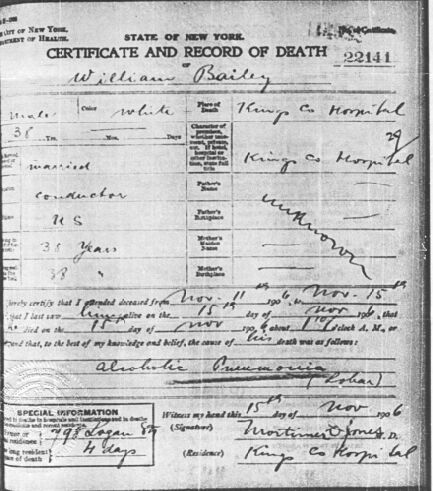 OF NEW YORK.
STATE OF NEW YORK.
DEPARTMENT OF HEALTH.
No. of Certificate.
CERTIFICATE AND RECORD OF DEATH
22141
OF
William Bailey
Male
Color
White
Place of Death
Kings Co Hospital
38
Yrs.
Mos.
Days
Character of premises, whether tenement, private, etc. If hotel, hospital or other institution, state full title
Kings Co Hospital
married
Father's Name
conductor
unknown
US
Father's Birthplace
38 Years
Mother's Maiden Name
38 "
Mother's Birthplace
hereby certify that I attended deceased from Nov. 11th 1906, to Nov. 15th
that I last saw him alive on the 15th day of Nov 1906, that
he died on the 15th day of Nov 1906, about o'clock A. M., or
and that, to the best of my knowledge and belief, the cause of his death was as follows:
Alcoholic Pneumonia
(Lobar)
SPECIAL INFORMATION
Witness my hand this 15th day of Nov 1906
residence 798 Logan St
(Signature) Mortimer D Jones M. D.
long resident
place of death 4 days
(Residence) Kings Co Hospital